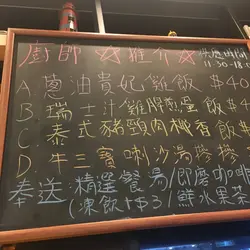 廚師☆推介☆ 供應時間
11:30-18:0
A. 蔥油貴妃雞飯 $40
B. 瑞士汁雞髀煎蛋飯 $
C. 泰式豬頸肉檬香飯 $
D. 牛三寶喇沙湯檬檬
奉送:精選餐湯/即磨咖啡
(凍飲+$3/鮮水果茶